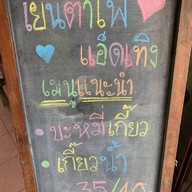 เย็นตาโฟ
แอ็ดเทิง
เมนูแนะนำ
• บะหมี่เกี๊ยว
• เกี๊ยวน้ำ
35/40